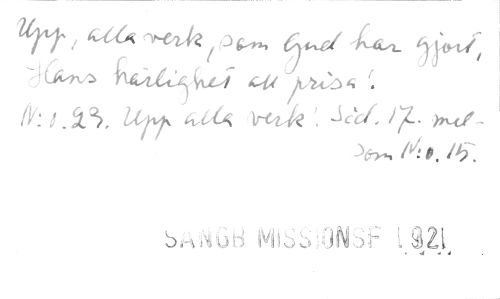 Upp, alla verk, som Gud har gjort,
Hans härlighet att prisa!
N:o. 23. Upp alla verk! Sid. 17. mel-
som N:o. 15.
SANGB MISSIONSF 1921